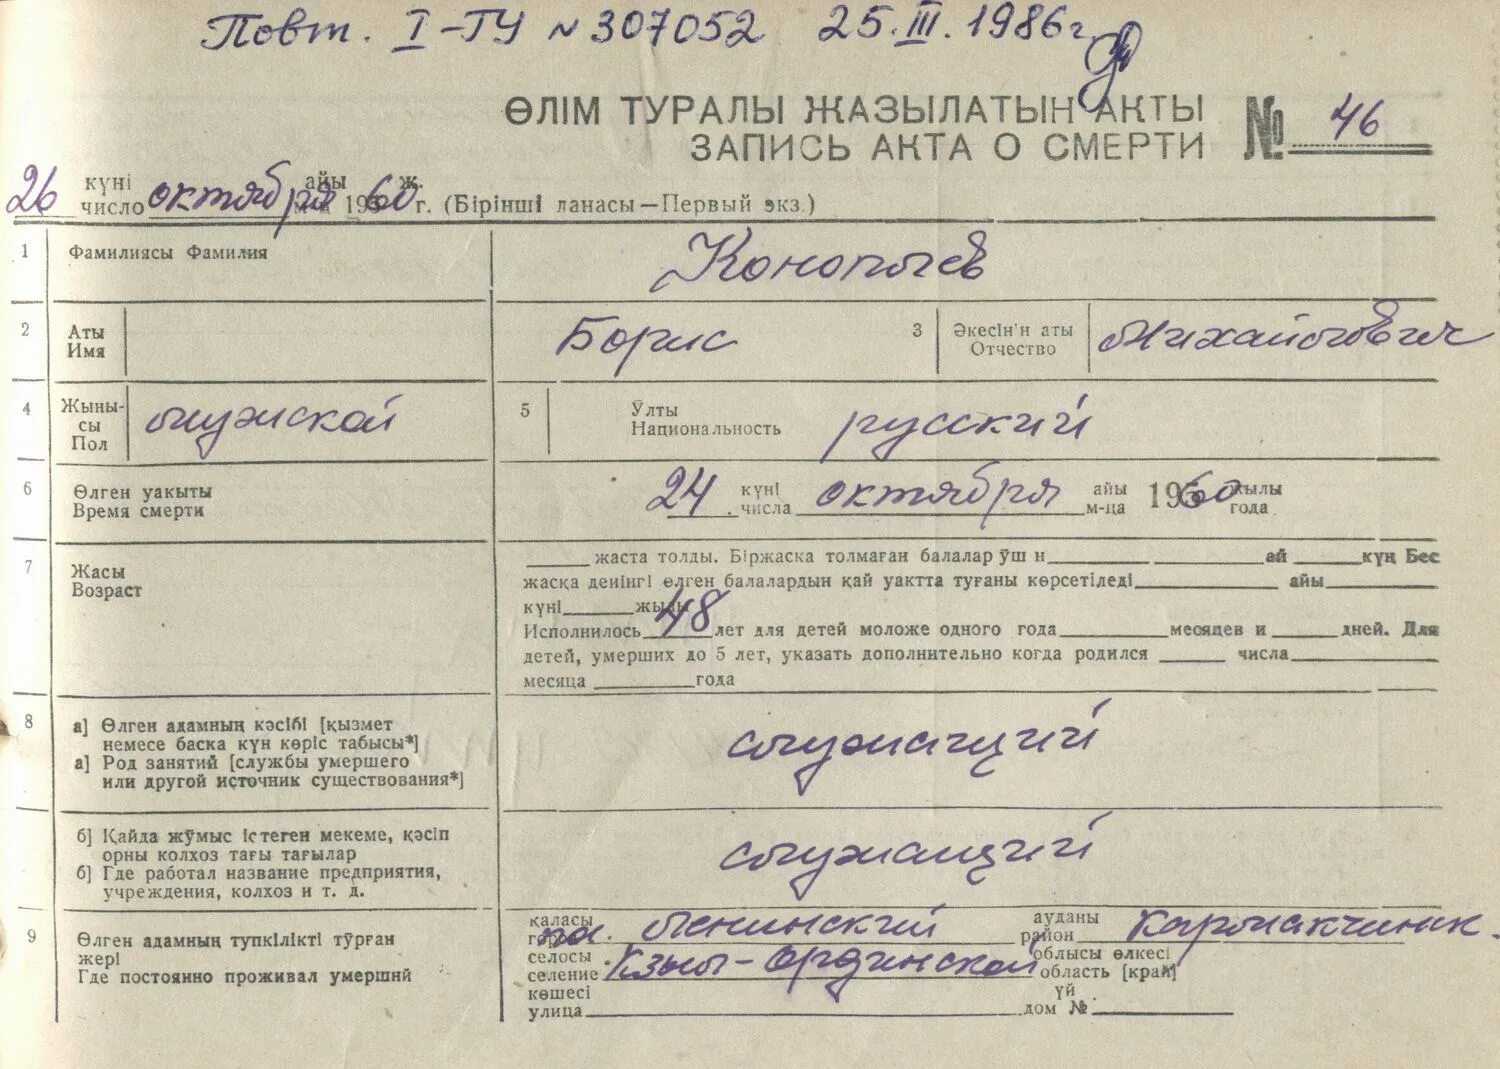 Повт. I-ГУ № 307052 25.III.1986 г.
ӨЛІМ ТУРАЛЫ ЖАЗЫЛАТЫН АКТЫ
ЗАПИСЬ АКТА О СМЕРТИ № 46
26 күні октября айы 1960 ж.
число м-ц г. (Бірінші данасы—Первый экз.)
1 Фамилиясы Фамилия Конопычев
2 Аты Имя Борис 3 Әкесін'н аты Отчество Михайлович
4 Жыны-сы Пол мужской 5 Ўлты Национальность русский
6 Өлген уакыты
Время смерти 24 күні числа октября айы м-ца 1960 жылы года
7 Жасы
Возраст
жаста толды. Біржаска толмаған балалар ўш н ай күң Бес
жасқа деиінгі өлген балалардын қай уактта туғаны көрсетіледі айы
күні жылы
Исполнилось 48 лет для детей моложе одного года месяцев и дней. Для
детей, умерших до 5 лет, указать дополнительно когда родился числа
месяца года
8 а] Өлген адамның кәсібі [қызмет
немесе баска күн көріс табысы*]
а] Род занятий [службы умершего
или другой источник существования*]
служащий
б] Қайда жўмыс істеген мекеме, қәсіп
орны колхоз тағы тағылар
б] Где работал название предприятия,
учреждения, колхоз и т. д.
служащий
9 Өлген адамның тупкілікті тўрған
жері
Где постоянно проживал умерший
қаласы ауданы
город Ленинский район Кармакчинск.
селосы облысы өлкесі
селение Кзыл-Ординской область [край]
көшесі үй
улица дом №